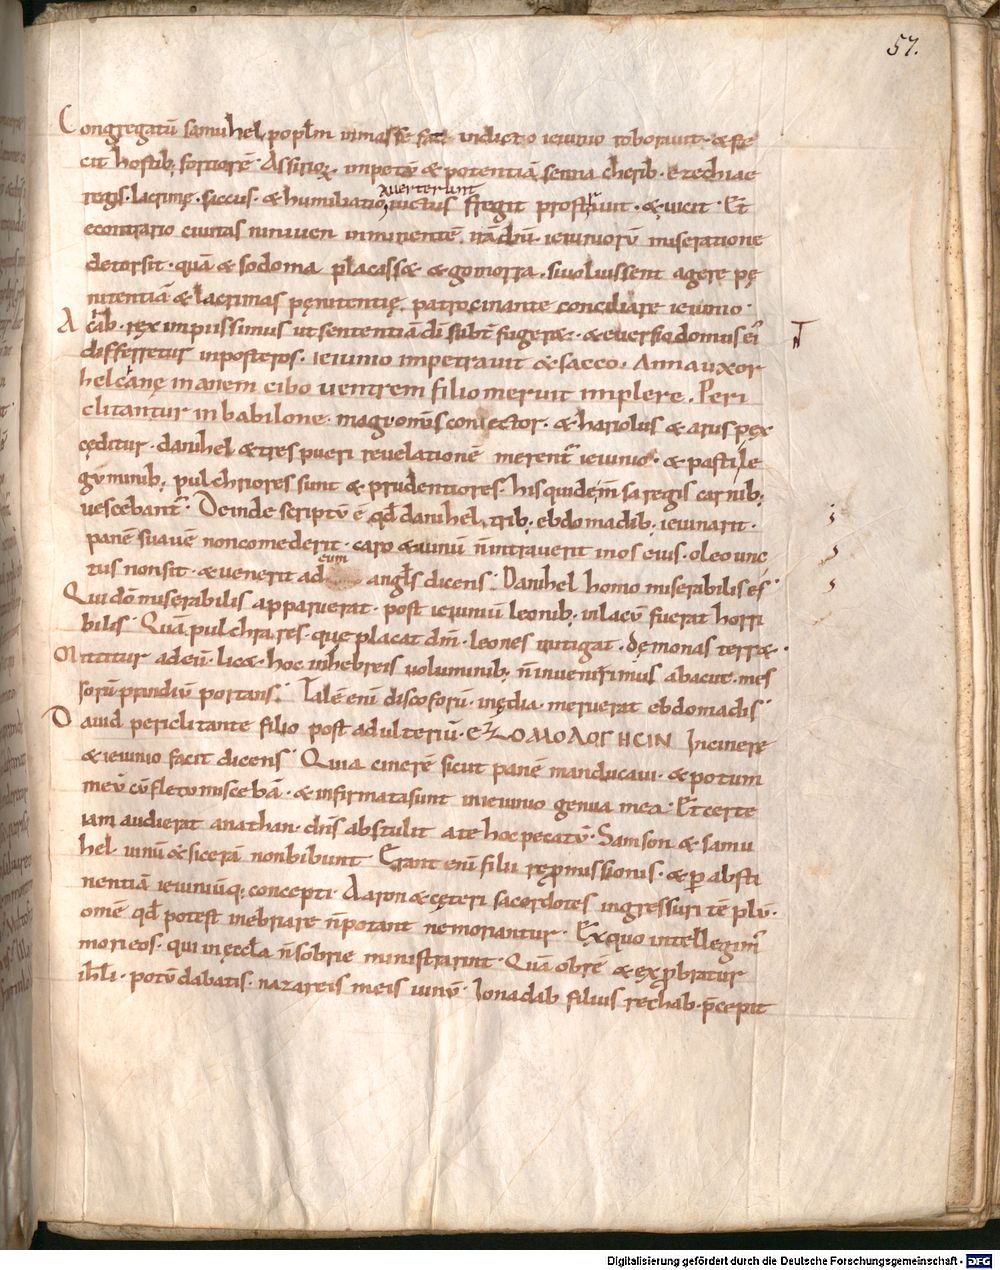 57.
Congregatū samuhel popłm inmasse fac indicto ieiunio roborauit · & fe
cit hostib; fortiorē · Assirioꝝ · impetū & potentiā senna cherib · ezechiae
regis · lacrimę · saccus · & humiliatio, auerterunt uictus fregit prostrauit · & uicit · Et
econtrario ciuitas niniuen inminentē · irādnī · ieiuniorū miseratione
detorsit · quā & sodoma placass& & gomorra · siuoluissent agere pę
nitentiā & lacrimas pęnitentię · patrocinante conciliare ieiunio ·
Achab · rex impiissimus ut sententiā dī subt fuger& · & euersio domus eī
differretur inposteros · ieiunio impetrauit & sacco · Anna uxor
helcanę inanem cibo uentrem filio meruit implere · Peri
clitantur in babilone · magi omīs coniector · & hariolus & arus pex
cęditur · danihel & tres pueri reuelationē merent ieiunio · & pasti le
gūminib; pulchriores sunt & prudentiores · his qui dē m̄sa regis carnib;
uescebant · Deinde scriptū ē qđ danihel, trib; ebdomadib; ieiunarit ·
panē suauē non comederit · caro & uinū n̄ intrauerit in os eius · oleo unc
tus non sit · & uenerit ad eum angls dicens · Danihel homo miserabilis es ·
Qui dō miserabilis apparuerat · post ieiuniū leonib; in lacū fuerat horri
bilis · Quā pulchra res · que placat dm̄ · leones mitigat · dęmonas terr& ·
Mittitur ad eū · lic& · hoc in hebreis uoluminib; n̄ inuenerimus abacuc · mes
sorū prandiū portans · Talē enī discoforū · inędia · meruerat ebdomadis ·
Dauid periclitante filio post adulteriū · eΞOMOΛOGHCIN In cinere
& ieiunio facit dicens · Quia cinerē sicut panē manducaui · & potum
meū cū fletu miscebā · & infirmata sunt in ieiunio genua mea · Et certe
iam audierat a nathan · dn̄s abstulit a te hoc pecatū · Samson & samu
hel uinū & sicerā non bibunt Erant enī filii repmissionis · & p absti
nentiā ieiuniūq; concepti · Aaron & cęteri sacerdotes ingressuri tē plū ·
omē qđ potest inebriare n̄ potant ne moriantur · Ex quo intellegim
mori eos · qui in ęccła n̄ sobrie ministrarint · Quā obrē & exprobratur
iħłi · potū dabatis · nazareis meis uinū · Ionadab filius rechab · p̄cepit
Digitalisierung gefördert durch die Deutsche Forschungsgemeinschaft - DFG